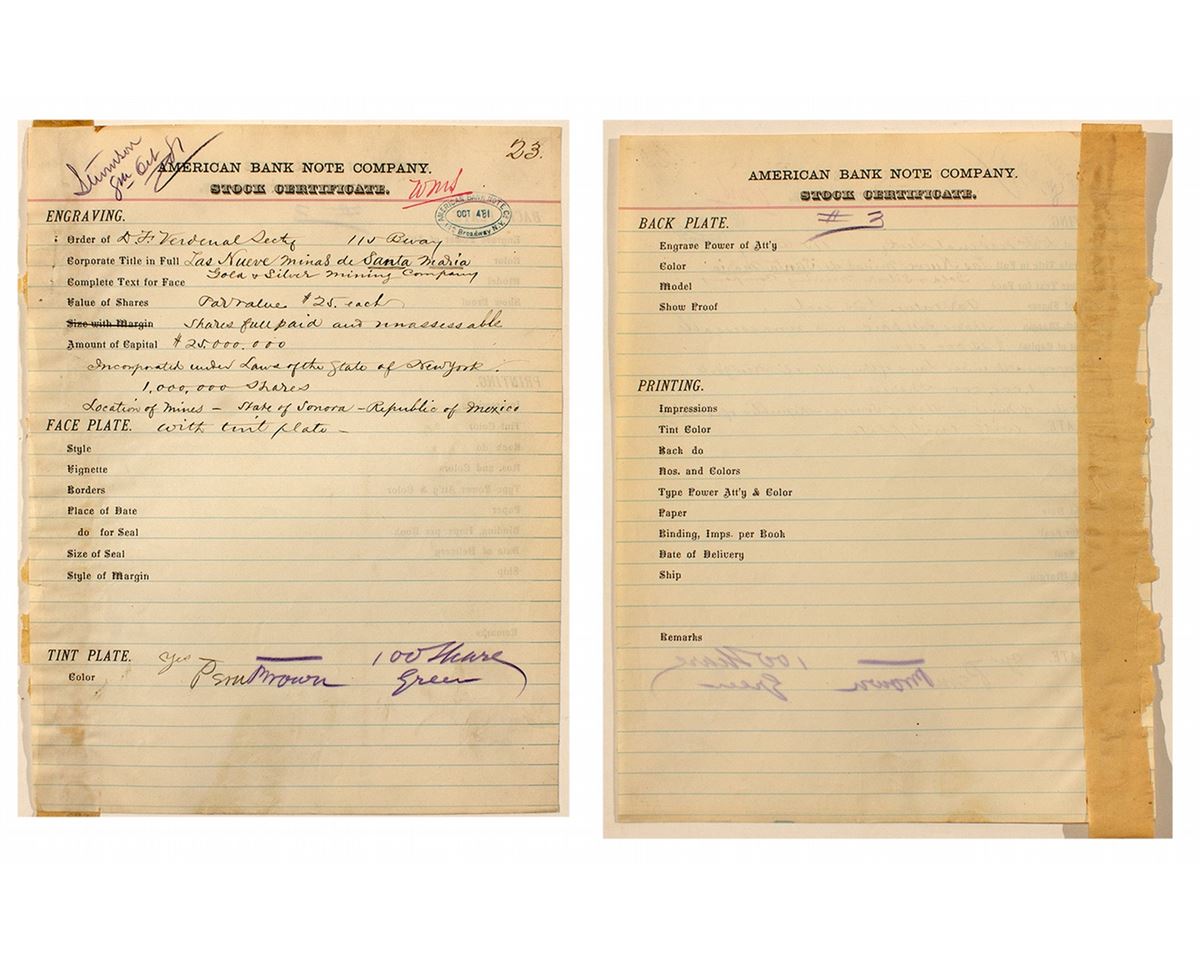 Stimson
23.
AMERICAN BANK NOTE COMPANY.
STOCK CERTIFICATE.
AMERICAN BANK NOTE Co
OCT 4 81
Broadway N.Y.
ENGRAVING.
Order of D F Verdenal Secty 115 Bway
Corporate Title in Full Las Nueve Minas de Santa Maria
Gold & Silver Mining Company
Complete Text for Face
Value of Shares Par value $25. each
Size with Margin Shares full paid and unassessable
Amount of Capital $25.000.000
Incorporated under Laws of the State of New York.
1,000,000 Shares
Location of Mines – State of Sonora – Republic of Mexico
FACE PLATE. with tint plate –
Style
Vignette
Borders
Place of Date
do for Seal
Size of Seal
Style of Margin
TINT PLATE. Yes 100 Share
Color Brown Green
AMERICAN BANK NOTE COMPANY.
STOCK CERTIFICATE.
BACK PLATE. # 3
Engrave Power of Att'y
Color
Model
Show Proof
PRINTING.
Impressions
Tint Color
Back do
Nos. and Colors
Type Power Att'y & Color
Paper
Binding, Imps. per Book
Date of Delivery
Ship
Remarks